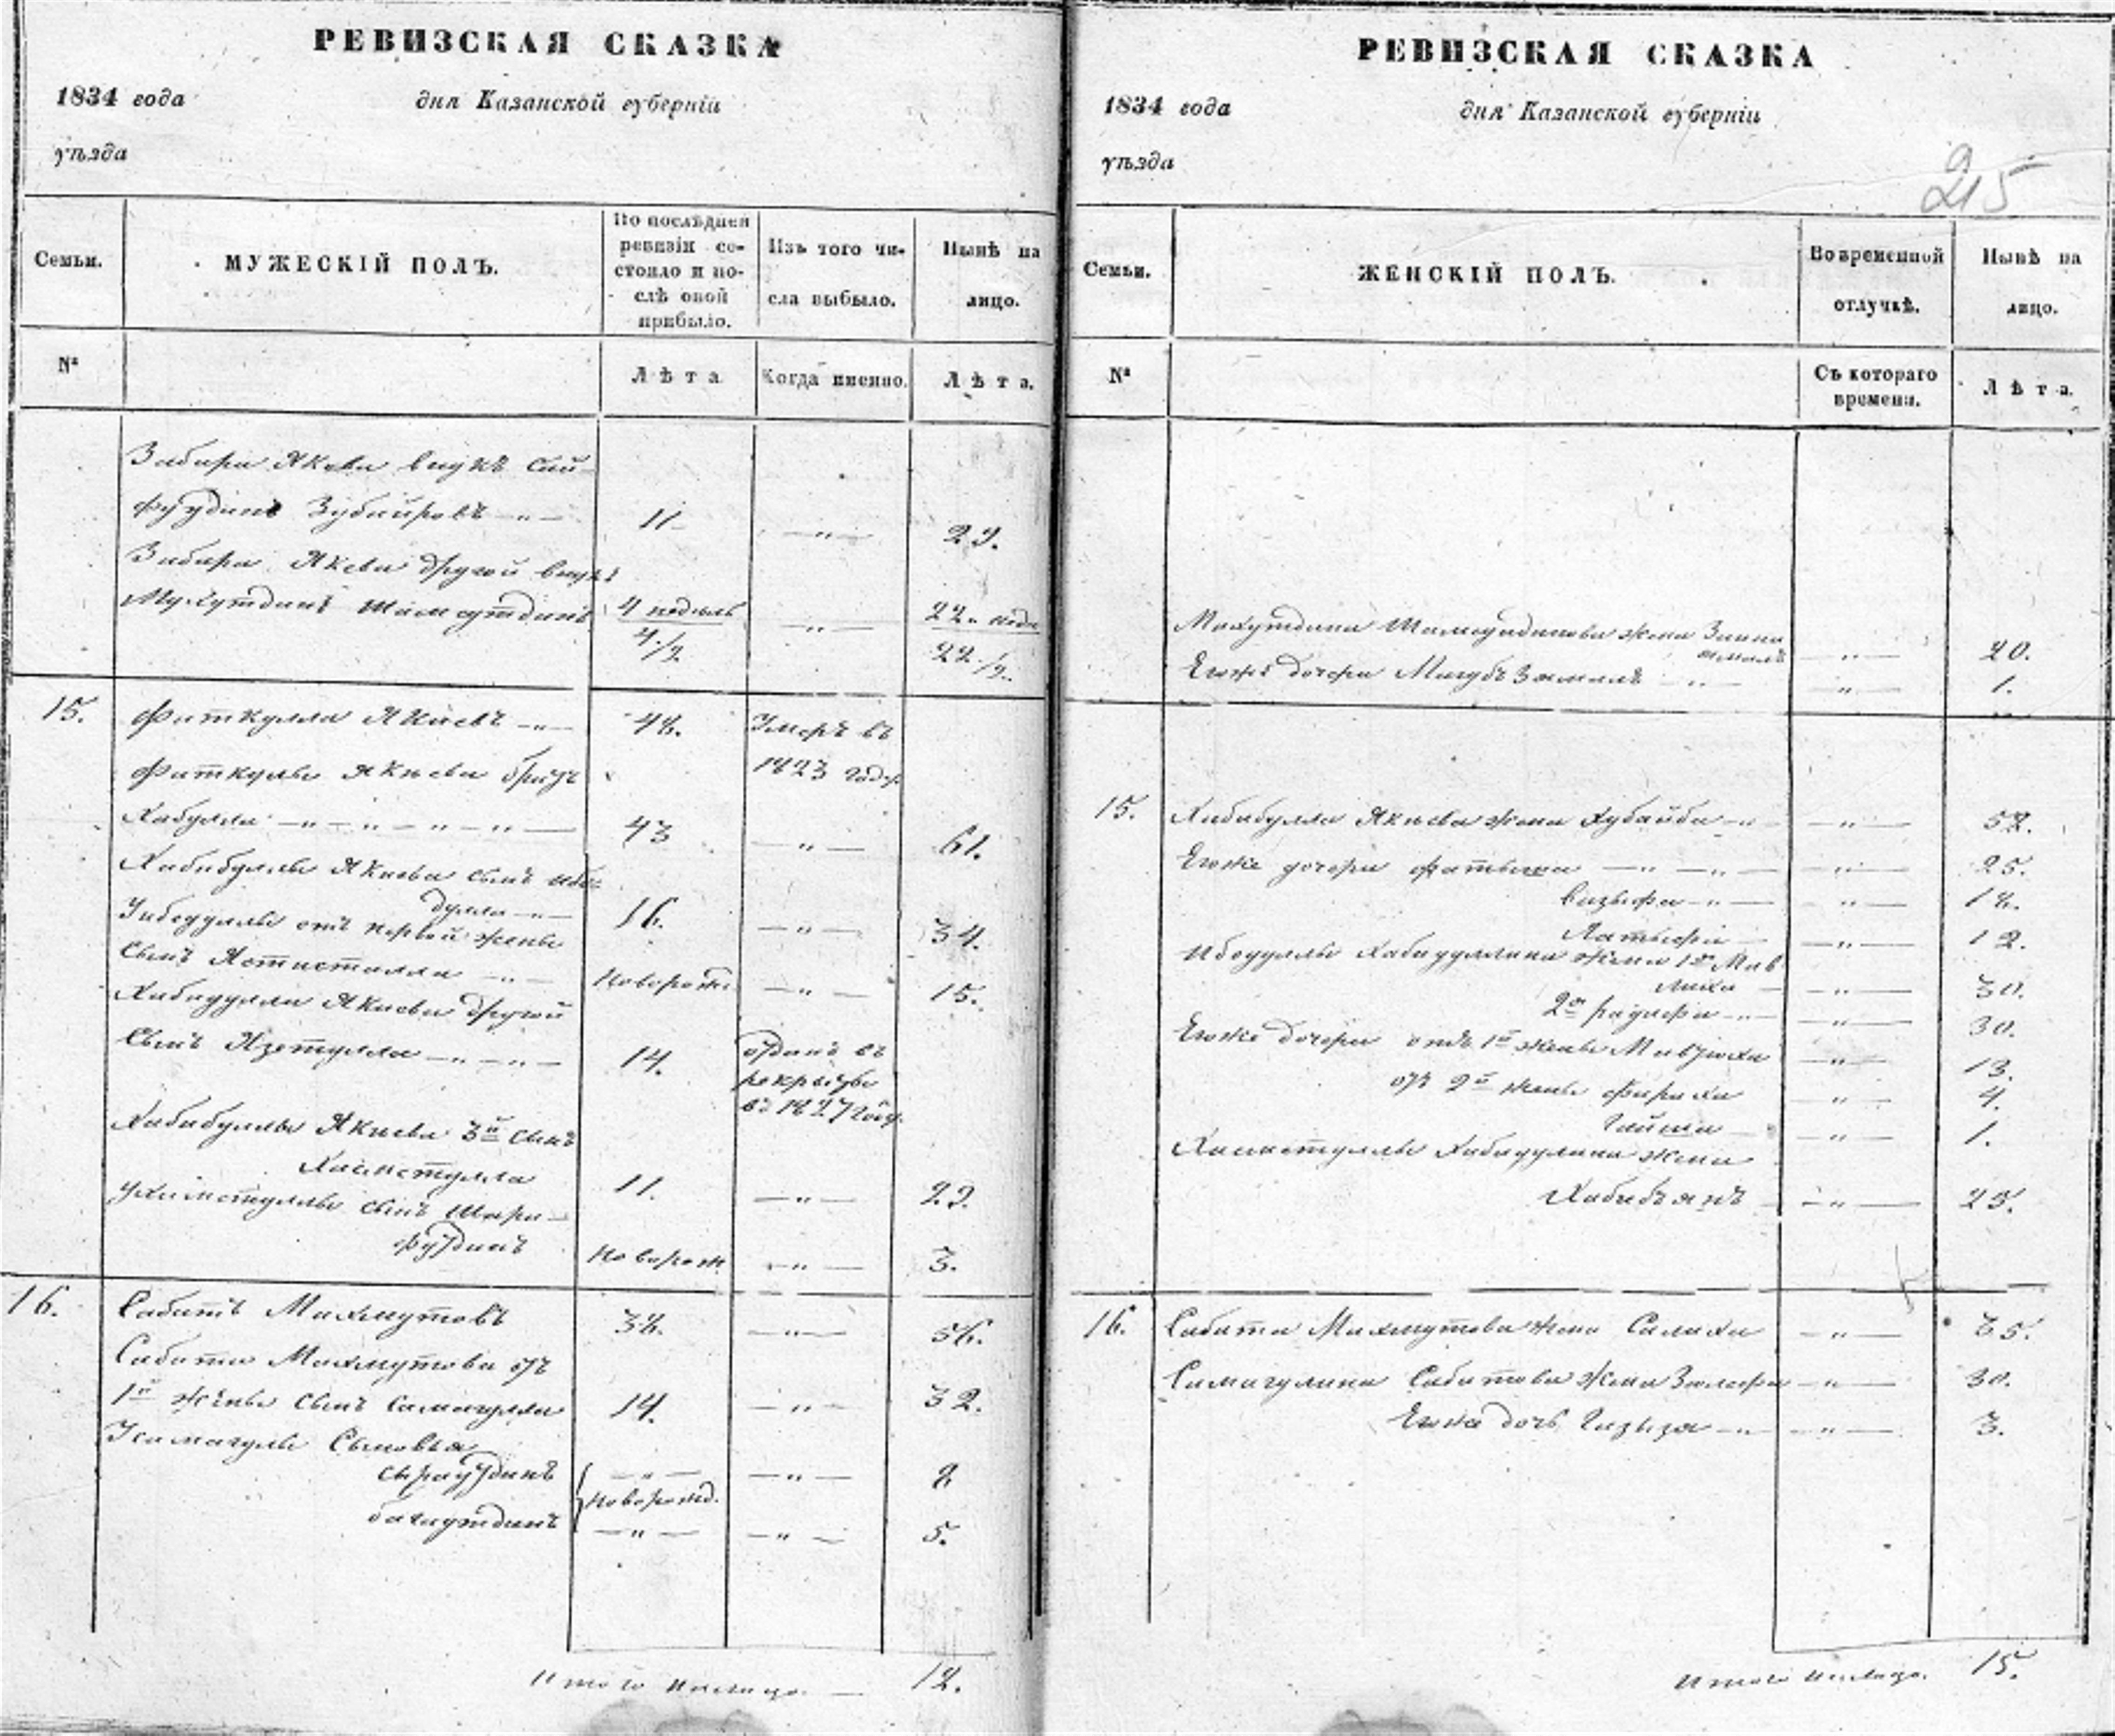 РЕВИЗСКАЯ СКАЗКА
1834 года дня Казанской губернiи
уѣзда
Семьи. МУЖЕСКIЙ ПОЛЪ. По послѣдней ревизiи состояло и послѣ оной прибыло. Изъ того числа выбыло. Нынѣ на лицо.
№ Лѣта Когда именно. Лѣта.
Забира Якева внукъ Сай-
фуудинъ Зубаировъ 11 29.
Забира Якева другой внукъ
Мухутдинъ Шамсутдинъ 4 недель 22. неде
4./2. 22./2.
15. Фаткулла Якиевъ 48. Умеръ въ
Фаткуллы Якиева братъ 1823 годе
Хабулла 43 61.
Хабибуллы Якиева сынъ Ибе-
дулла 16. 34.
Убедуллы отъ первой жены
сынъ новорожд 15.
Хабидуллы Якиева другой
сынъ Изетулла 14. отданъ въ
рекруты
въ 1827 году.
Хабибуллы Якиева 3й сынъ
Хисметулла 11. 29.
Ухиметуллы сынъ Шара-
футдинъ Новорож 3.
16. Сабитъ Махмутовъ 38. 56.
Сабита Махмутова отъ
1й жены сынъ Самигулла 14. 32.
Усамигулы Сыновья
Сираутдинъ 8
новорожд.
багаутдинъ 5.
Итого налицо 12.
РЕВИЗСКАЯ СКАЗКА
1834 года дня Казанской губернiи
уѣзда
215
Семьи. ЖЕНСКIЙ ПОЛЪ. Во временной отлучкѣ. Нынѣ на лицо.
№ Съ котораго времени. Лѣта.
Махутдина Шамсудинова жена Зайна
20.
Егоже дочери Магубъ Замалъ 1.
15. Хабибуллы Якиева жена Хубайба 58.
Егоже дочери Фатыма 25.
Вазыфа 18.
Латыфа 12.
Ибедуллы Хабидуллина жена 1я Мав
лиха 30.
2я Рауфа 30.
Егоже дочери отъ 1й жены Мавзюха 13.
отъ 2й жены Фариха 4.
Гайша 1.
Хисметуллы Хабидулина жена
Хабибъянъ 25.
16. Сабита Махмутова жена Салиха 35.
Самигулина Сабитова жена Зюлефа 30.
Егоже дочь Газыза 3.
Итого налицо. 15.